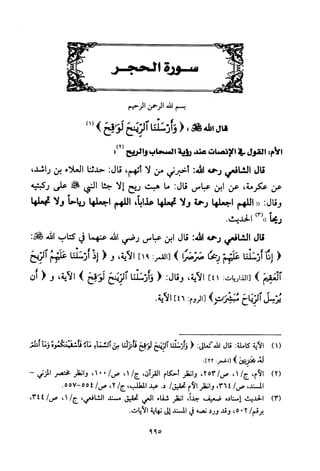 سورة الحجر
بسم الله الرحمن الرحيم
قال الله ﷻ: ﴿ وَأَرْسَلْنَا ٱلرِّيَـٰحَ لَوَٰقِحَ ﴾ (١)
الأم: القول في الإنصات عند رؤية السحاب والريح (٢):
قال الشافعي رحمه الله: أخبرني من لا أتهم، قال: حدثنا العلاء بن راشد،
عن عكرمة، عن ابن عباس قال: ما هبت ريح إلا جثا النبي ﷺ على ركبتيه
وقال: «اللهم اجعلها رحمة ولا تجعلها عذاباً، اللهم اجعلها رياحاً ولا تجعلها
ريحاً» (٣) الحديث.
قال الشافعي رحمه الله: قال ابن عباس رضي الله عنهما في كتاب الله ﷻ:
﴿ إِنَّآ أَرْسَلْنَا عَلَيْهِمْ رِيحًا صَرْصَرًا ﴾ [القمر: ١٩] الآية، و ﴿ إِذْ أَرْسَلْنَا عَلَيْهِمُ ٱلرِّيحَ
ٱلْعَقِيمَ ﴾ [الذاريات: ٤١] الآية، وقال: ﴿ وَأَرْسَلْنَا ٱلرِّيَـٰحَ لَوَٰقِحَ ﴾ الآية، و ﴿ أَن
يُرْسِلَ ٱلرِّيَاحَ مُبَشِّرَٰتٍ ﴾ [الروم: ٤٦] الآية.
(١) الآية كاملة: قال الله تعالى: ﴿ وَأَرْسَلْنَا ٱلرِّيَـٰحَ لَوَٰقِحَ فَأَنزَلْنَا مِنَ ٱلسَّمَآءِ مَآءً فَأَسْقَيْنَـٰكُمُوهُ وَمَآ أَنتُمْ
لَهُۥ بِخَـٰزِنِينَ ﴾ [الحجر: ٢٢].
(٢) الأم، ج/١، ص/٢٥٣، وانظر أحكام القرآن، ج/١، ص/١٠٠، وانظر مختصر المزني -
المسند، ص/٣٦٤، وانظر الأم تحقيق/ د. عبد المطلب، ج/٢، ص/٥٥٤-٥٥٧.
(٣) الحديث إسناده ضعيف جداً، انظر شفاء العي تحقيق مسند الشافعي، ج/١، ص/٣٤٤،
برقم/٥٠٢، وقد ورد نصه في المسند إلى نهاية الآيات.
٩٩٥